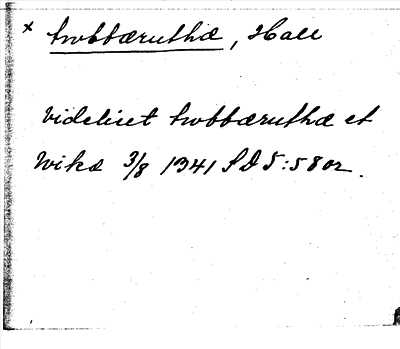 x twbbæruthæ, Hall
videlicet twbbæruthæ et
Wikæ 3/8 1341 SD 5:580r.